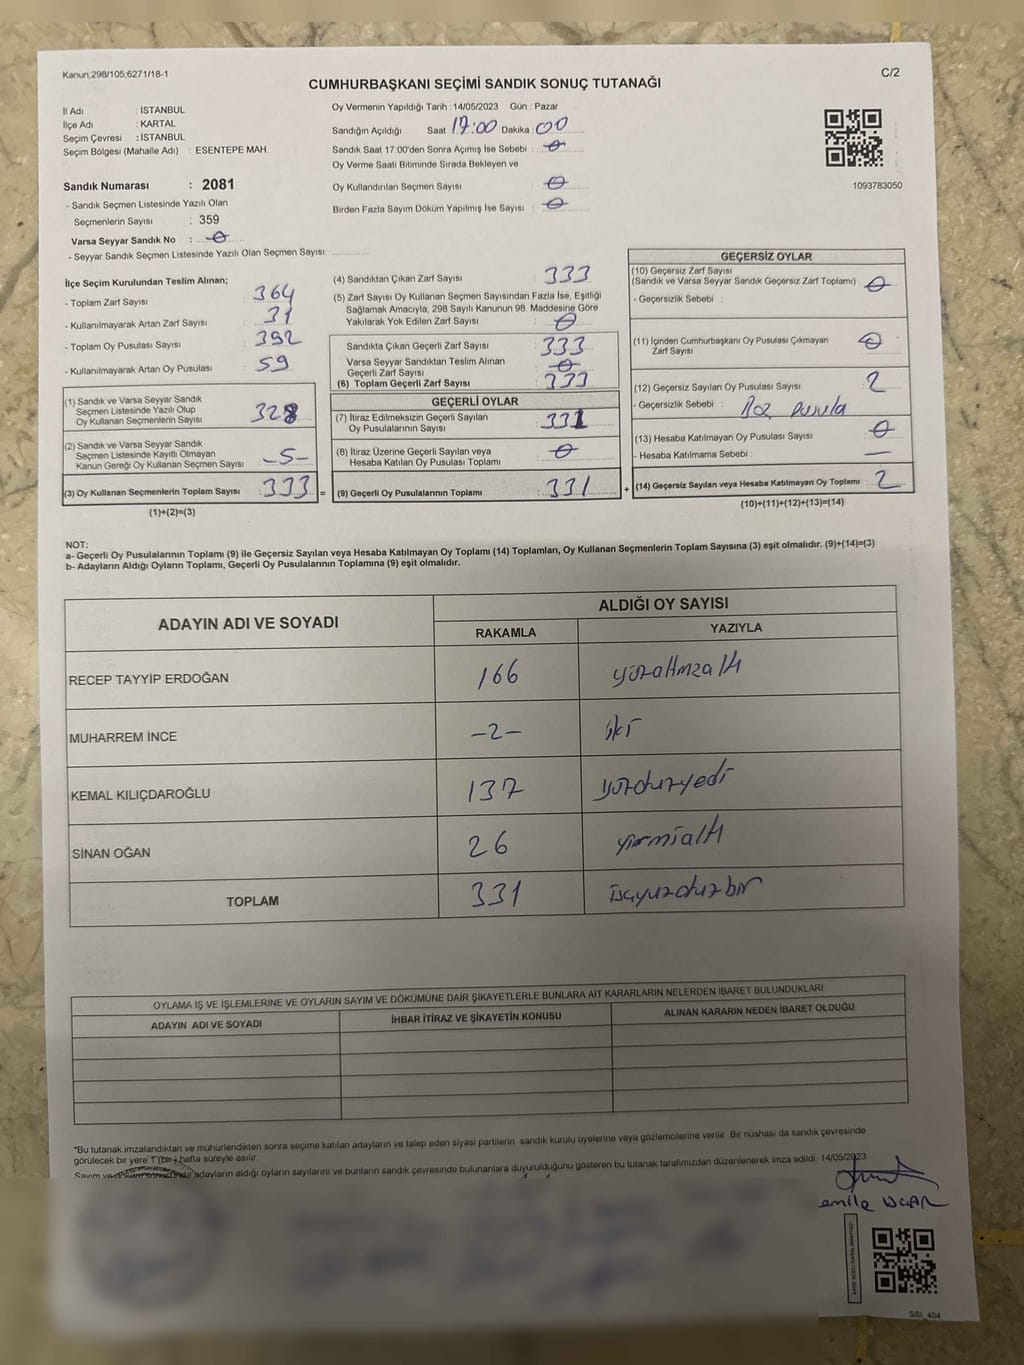 Kanun,298/105;6271/18-1
C/2
CUMHURBAŞKANI SEÇİMİ SANDIK SONUÇ TUTANAĞI
İl Adı : İSTANBUL
İlçe Adı : KARTAL
Seçim Çevresi : İSTANBUL
Seçim Bölgesi (Mahalle Adı) : ESENTEPE MAH.
Sandık Numarası : 2081
- Sandık Seçmen Listesinde Yazılı Olan
Seçmenlerin Sayısı : 359
Varsa Seyyar Sandık No : 0
- Seyyar Sandık Seçmen Listesinde Yazılı Olan Seçmen Sayısı:
Oy Vermenin Yapıldığı Tarih : 14/05/2023 Gün : Pazar
Sandığın Açıldığı Saat 17:00 Dakika : 00
Sandık Saat 17:00'den Sonra Açımış İse Sebebi : 0
Oy Verme Saati Bitiminde Sırada Bekleyen ve
Oy Kullandırılan Seçmen Sayısı : 0
Birden Fazla Sayım Döküm Yapılmış İse Sayısı : 0
1093783050
İlçe Seçim Kurulundan Teslim Alınan;
- Toplam Zarf Sayısı : 364
- Kullanılmayarak Artan Zarf Sayısı : 31
- Toplam Oy Pusulası Sayısı : 392
- Kullanılmayarak Artan Oy Pusulası : 59
(1) Sandık ve Varsa Seyyar Sandık
Seçmen Listesinde Yazılı Olup
Oy Kullanan Seçmenlerin Sayısı : 328
(2) Sandık ve Varsa Seyyar Sandık
Seçmen Listesinde Kayıtlı Olmayan
Kanun Gereği Oy Kullanan Seçmen Sayısı : -5-
(3) Oy Kullanan Seçmenlerin Toplam Sayısı : 333 =
(1)+(2)=(3)
(4) Sandıktan Çıkan Zarf Sayısı : 333
(5) Zarf Sayısı Oy Kullanan Seçmen Sayısından Fazla İse, Eşitliği
Sağlamak Amacıyla, 298 Sayılı Kanunun 98. Maddesine Göre
Yakılarak Yok Edilen Zarf Sayısı : 0
Sandıkta Çıkan Geçerli Zarf Sayısı : 333
Varsa Seyyar Sandıktan Teslim Alınan
Geçerli Zarf Sayısı : 0
(6) Toplam Geçerli Zarf Sayısı : 333
GEÇERLİ OYLAR
(7) İtiraz Edilmeksizin Geçerli Sayılan
Oy Pusulalarının Sayısı : 331
(8) İtiraz Üzerine Geçerli Sayılan veya
Hesaba Katılan Oy Pusulası Toplamı : 0
(9) Geçerli Oy Pusulalarının Toplamı : 331 +
GEÇERSİZ OYLAR
(10) Geçersiz Zarf Sayısı
(Sandık ve Varsa Seyyar Sandık Geçersiz Zarf Toplamı) : 0
- Geçersizlik Sebebi :
(11) İçinden Cumhurbaşkanı Oy Pusulası Çıkmayan
Zarf Sayısı : 0
(12) Geçersiz Sayılan Oy Pusulası Sayısı : 2
- Geçersizlik Sebebi : Boz pusula
(13) Hesaba Katılmayan Oy Pusulası Sayısı : 0
- Hesaba Katılmama Sebebi : —
(14) Geçersiz Sayılan veya Hesaba Katılmayan Oy Toplamı : 2
(10)+(11)+(12)+(13)=(14)
NOT:
a- Geçerli Oy Pusulalarının Toplamı (9) ile Geçersiz Sayılan veya Hesaba Katılmayan Oy Toplamı (14) Toplamları, Oy Kullanan Seçmenlerin Toplam Sayısına (3) eşit olmalıdır. (9)+(14)=(3)
b- Adayların Aldığı Oyların Toplamı, Geçerli Oy Pusulalarının Toplamına (9) eşit olmalıdır.
ADAYIN ADI VE SOYADI
ALDIĞI OY SAYISI
RAKAMLA YAZIYLA
RECEP TAYYİP ERDOĞAN 166 yüzaltmışaltı
MUHARREM İNCE -2- iki
KEMAL KILIÇDAROĞLU 137 yüzotuzyedi
SİNAN OĞAN 26 yirmialtı
TOPLAM 331 üçyüzotuzbir
OYLAMA İŞ VE İŞLEMLERİNE VE OYLARIN SAYIM VE DÖKÜMÜNE DAİR ŞİKAYETLERLE BUNLARA AİT KARARLARIN NELERDEN İBARET BULUNDUKLARI
ADAYIN ADI VE SOYADI İHBAR İTİRAZ VE ŞİKAYETİN KONUSU ALINAN KARARIN NEDEN İBARET OLDUĞU
*Bu tutanak imzalandıktan ve mühürlendikten sonra seçime katılan adayların ve talep eden siyasi partilerin sandık kurulu üyelerine veya gözlemcilerine verilir. Bir nüshası da sandık çevresinde
görülecek bir yere 1 (bir) hafta süreyle asılır.
Sayım ve döküm sonucunda adayların aldığı oyların sayılarını ve bunların sandık çevresinde bulunanlara duyurulduğunu gösteren bu tutanak tarafımızdan düzenlenerek imza edildi. 14/05/2023
emile UÇAR
SGI_404